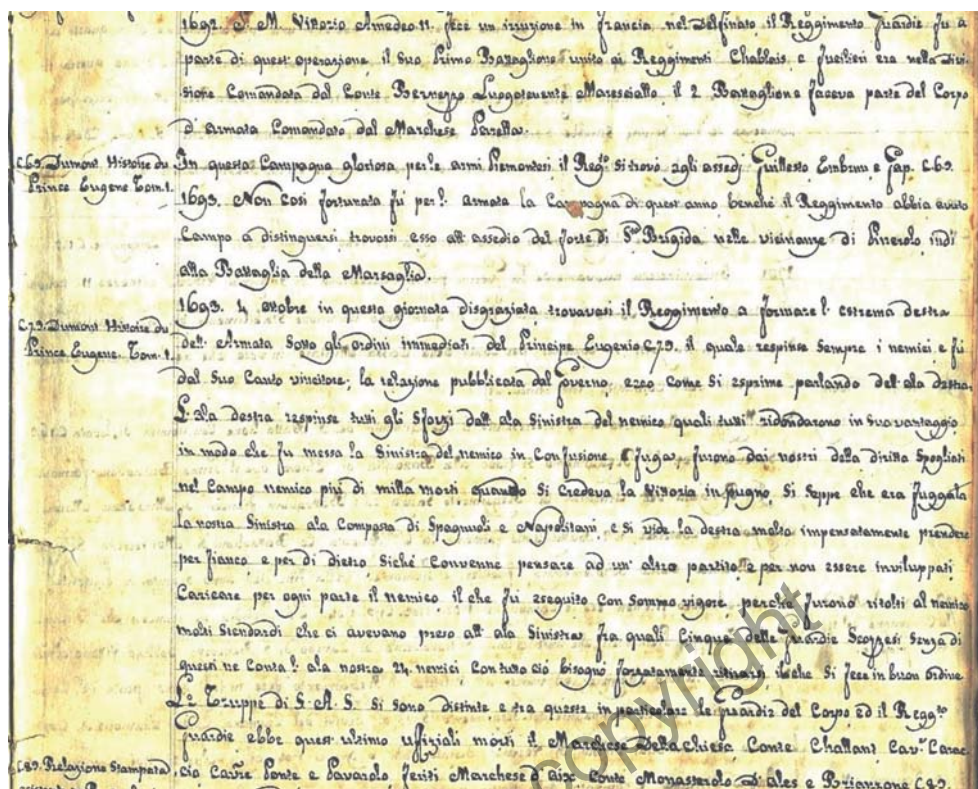 1692. S. M. Vittorio Amedeo 11. fece un irruzione in francia nel Delfinato il Reggimento Guardie fu a
parte di quest'operazione, il suo Primo Battaglione unito ai Reggimenti Chablais e fucilieri era nella Divi-
sione Comandata dal Conte Bernezzo Luogotenente Maresciallo il 2 Battaglione faceva parte del Corpo
d'armata Comandato dal Marchese Parella.
C.6.9. Dumont Histoire du
Prince Eugene Tom. 1.
In questa Campagna gloriosa per le armi Piemontesi il Regg.º si trovò agli assedj Guillestro Embrun e Gap. C.6.9.
1693. Non così fortunata fù per l'armata la Campagna di quest'anno, benchè il Reggimento abbia avuto
Campo a distinguersi trovossi esso all'assedio del forte di S.ta Brigida nelle vicinanze di Pinerolo indi
alla Battaglia della Marsaglia.
C.7.9. Dumont Histoire du
Prince Eugene. Tom. 1.
1693. 4 ottobre in questa giornata disgraziata trovavasi il Reggimento a formare l'estrema destra
dell'Armata sotto gli ordini immediati del Principe Eugenio C.7.9. il quale respinse sempre i nemici e fù
dal suo Canto vincitore, la relazione pubblicata dal Governo, ecco come si esprime parlando dell'ala destra,
L'ala destra respinse tutti gli sforzi dall'ala Sinistra del nemico quali tutti ridondarono in suo vantaggio
in modo che fu messa la Sinistra del nemico in Confusione e fuga, furono dai nostri della diritta Spogliati
nel Campo nemico più di milla morti quando si Credeva la Vittoria in pugno, si seppe che era fuggita
la nostra Sinistra ala Composta di Spagnuoli e Napolitani, e si vide la destra molto impensatamente prendere
per fianco e per di dietro Sichè Convenne pensare ad un'altro partito, e per non essere inviluppati
Caricare per ogni parte il nemico il che fù eseguito con sommo vigore perchè furono ritolti al nemico
molti Stendardi che ci avevano preso all'ala Sinistra fra quali Cinque delle Guardie Scozzesi senza di
questi ne Conta l'ala nostra 24 nemici Con tutto ciò bisognò forzatamente ritirarsi il che si fece in buon ordine
Le Truppe di S. A. S. si sono distinte e tra queste in particolare le Guardie del Corpo ed il Regg.to
Guardie ebbe quest'ultimo uffiziali morti il Marchese Della Chiesa Conte Challant Cav.r Carac
C.8.9. Relazione Stampata
cio Cav.re Ponte e Pavarolo feriti Marchese d'Aix Conte Monasterolo D'Ales e Brianzone C.8.9.
copyright